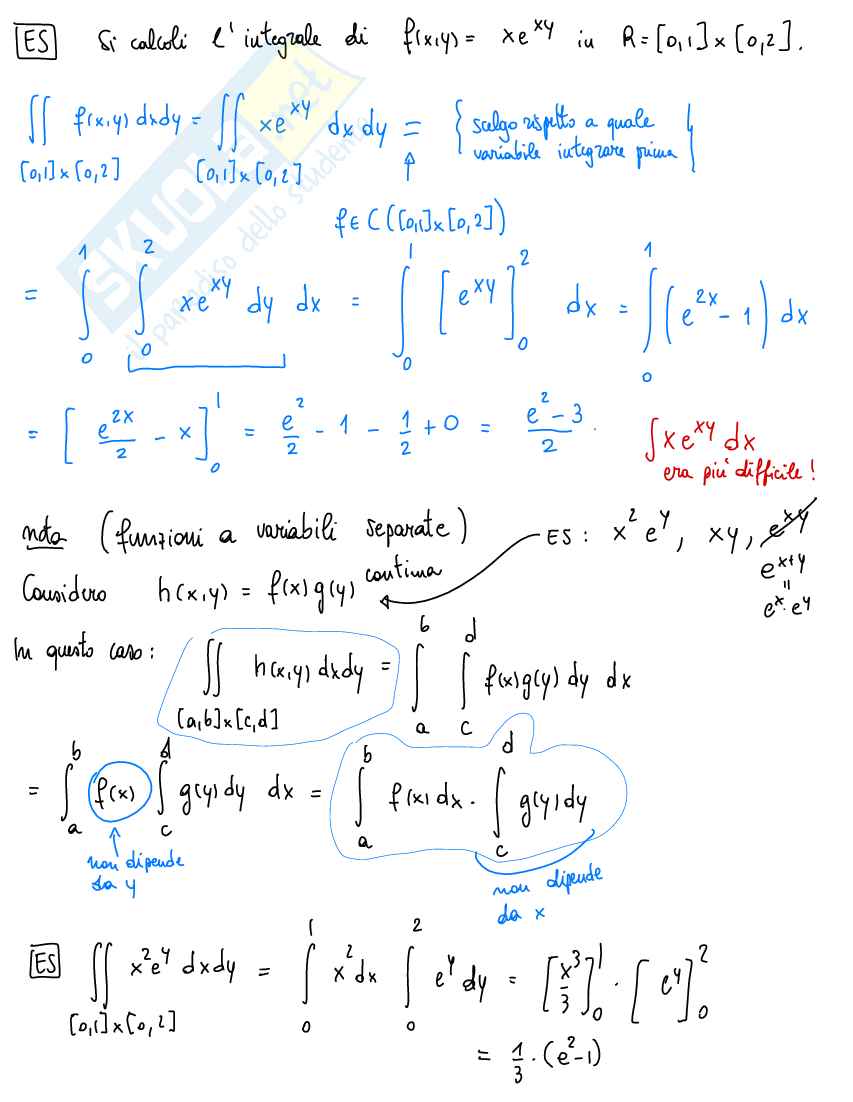 ES Si calcoli l'integrale di f(x,y) = xe^{xy} in R = [0,1]×[0,2].
∬_{[0,1]×[0,2]} f(x,y) dxdy = ∬_{[0,1]×[0,2]} xe^{xy} dx dy = { scelgo rispetto a quale variabile integrare prima }
↑
f ∈ C([0,1]×[0,2])
= ∫_0^1 ∫_0^2 xe^{xy} dy dx = ∫_0^1 [e^{xy}]_0^2 dx = ∫_0^1 (e^{2x} - 1) dx
= [e^{2x}/2 - x]_0^1 = e^2/2 - 1 - 1/2 + 0 = (e^2 - 3)/2.
∫ x e^{xy} dx
era più difficile!
nota (funzioni a variabili separate)
ES: x^2 e^y, xy, e^{xy}
e^{x+y}
=
e^x · e^y
Considero h(x,y) = f(x)g(y) continua
In questo caso: ∬_{[a,b]×[c,d]} h(x,y) dxdy = ∫_a^b ∫_c^d f(x)g(y) dy dx
= ∫_a^b f(x) ∫_c^d g(y) dy dx = ∫_a^b f(x) dx · ∫_c^d g(y) dy
non dipende
da y
non dipende
da x
ES ∬_{[0,1]×[0,2]} x^2e^y dxdy = ∫_0^1 x^2 dx ∫_0^2 e^y dy = [x^3/3]_0^1 · [e^y]_0^2
= 1/3 · (e^2-1)
SKUOLA.net
il paradiso dello studente